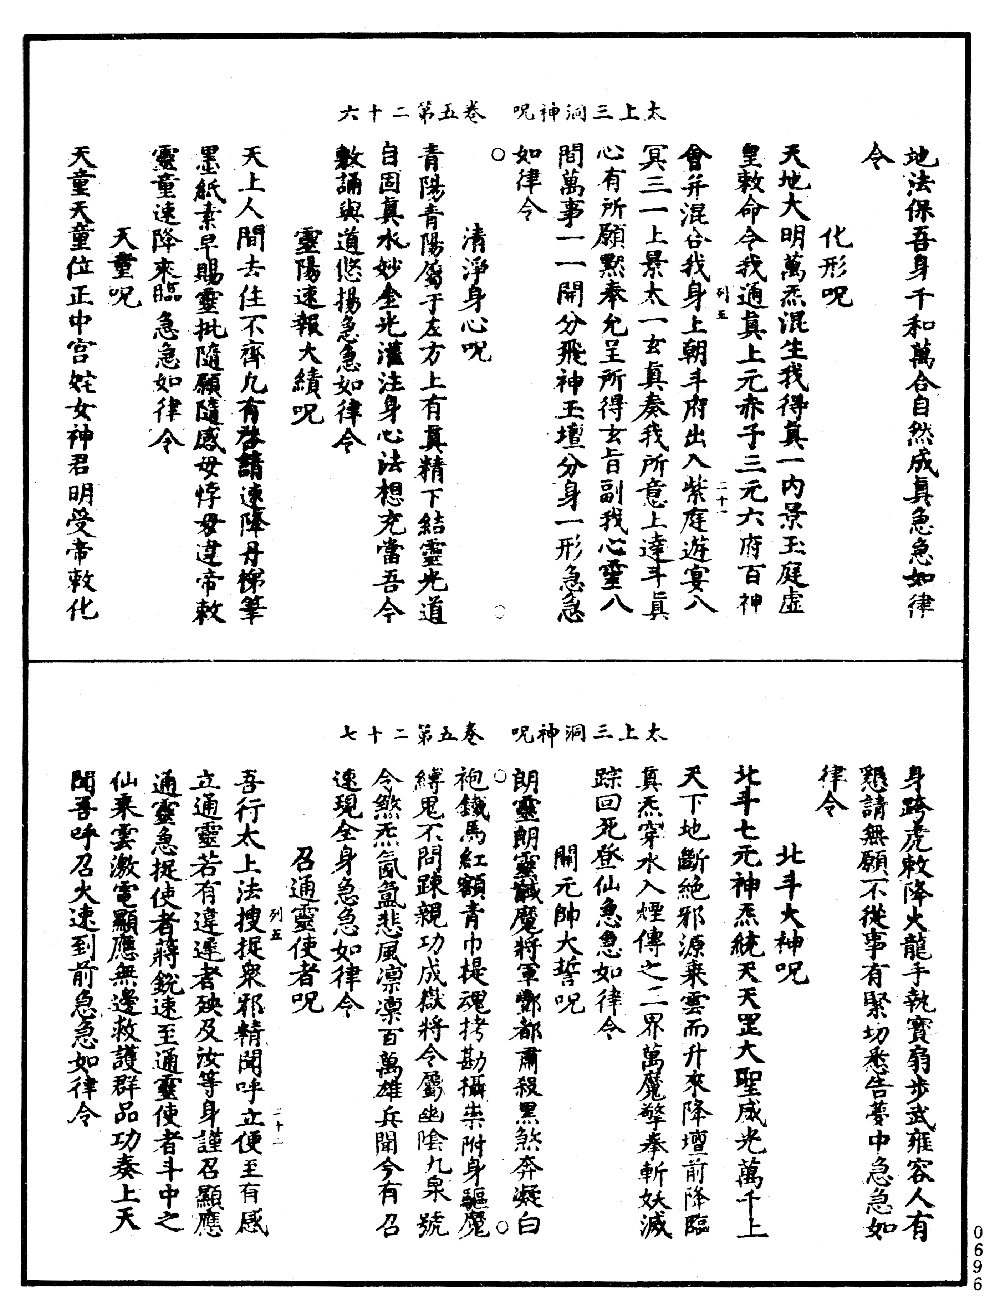 太上三洞神呪　卷五第二十六
地法保吾身千和萬合自然成真急急如律
令
化形呪
天地大明萬炁混生我得真一內景玉庭虛
皇敕命令我通真上元赤子三元六府百神
列五
二十一
會并混合我身上朝斗府出入紫庭遊宴八
冥三一上景太一玄真奏我所意上達斗真
心有所願黙奉允呈所得玄旨副我心靈八
間萬事一一開分飛神玉壇分身一形急急
如律令
清淨身心呪
青陽青陽屬于左方上有真精下結靈光道
自固真水妙金光灌注身心法想充當吾今
敷誦與道悠揚急急如律令
靈陽速報大績呪
天上人間去住不齊凡有啓請速降丹梯筆
墨紙素早賜靈批隨願隨感毋悖毋違帝敕
靈童速降來臨急急如律令
天童呪
天童天童位正中宫姹女神君明受帝敕化
太上三洞神呪　卷五第二十七
身跨虎敕降火龍手執寶扇步武雍容人有
懇請無願不從事有緊切悉告夢中急急如
律令
北斗大神呪
北斗七元神炁統天天罡大聖威光萬千上
天下地斷絶邪源乘雲而升來降壇前降臨
真炁穿水入煙傳之三界萬魔擎拳斬妖滅
踪回死登仙急急如律令
關元帥大誓呪
朗靈朗靈馘魔將軍酆都肅殺黑煞奔凝白
袍鐵馬紅額青巾提魂拷勘攝祟附身驅魔
縛鬼不問踈親功成嶽將令屬幽陰九泉號
令煞炁氤氳悲風凛凛百萬雄兵聞今有召
速現全身急急如律令
召通靈使者呪
列五
二十二
吾行太上法搜捉衆邪精聞呼立便至有感
立通靈若有違遲者殃及汝等身謹召顯應
通靈急捉使者蔣銳速至通靈使者斗中之
仙乘雲激電顯應無邊救護群品功奏上天
聞吾呼召火速到前急急如律令
0696